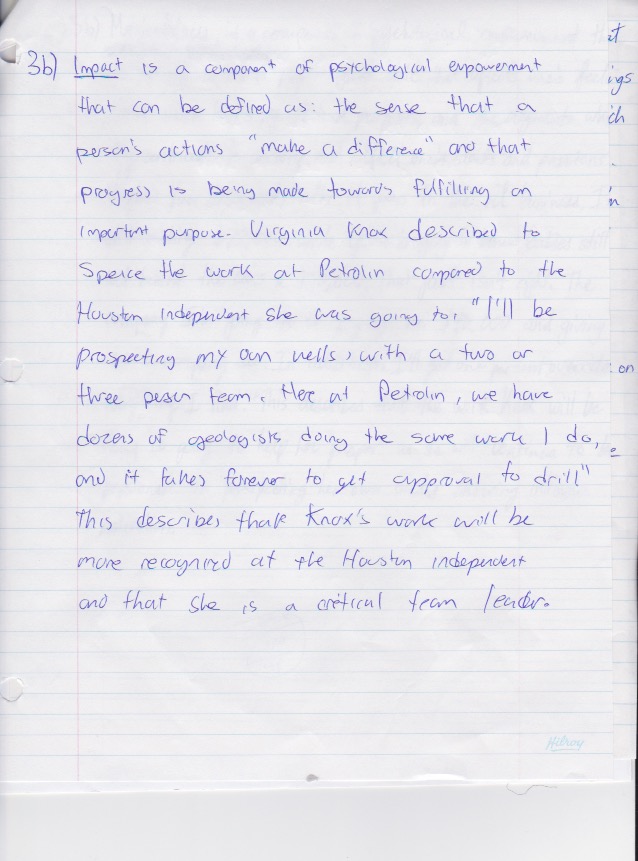 3b) Impact is a component of psychological empowerment
that can be defined as: the sense that a
person's actions "make a difference" and that
progress is being made towards fulfilling an
important purpose. Virginia Knox described to
Speice the work at Petrolin compared to the
Houston Independent she was going to, "I'll be
prospecting my own wells, with a two or
three person team. Here at Petrolin, we have
dozens of geologists doing the same work I do,
and it takes forever to get approval to drill"
This describes that Knox's work will be
more recognized at the Houston independent
and that she is a critical team leader.
Hilroy
at
ings
ich
in
on
e